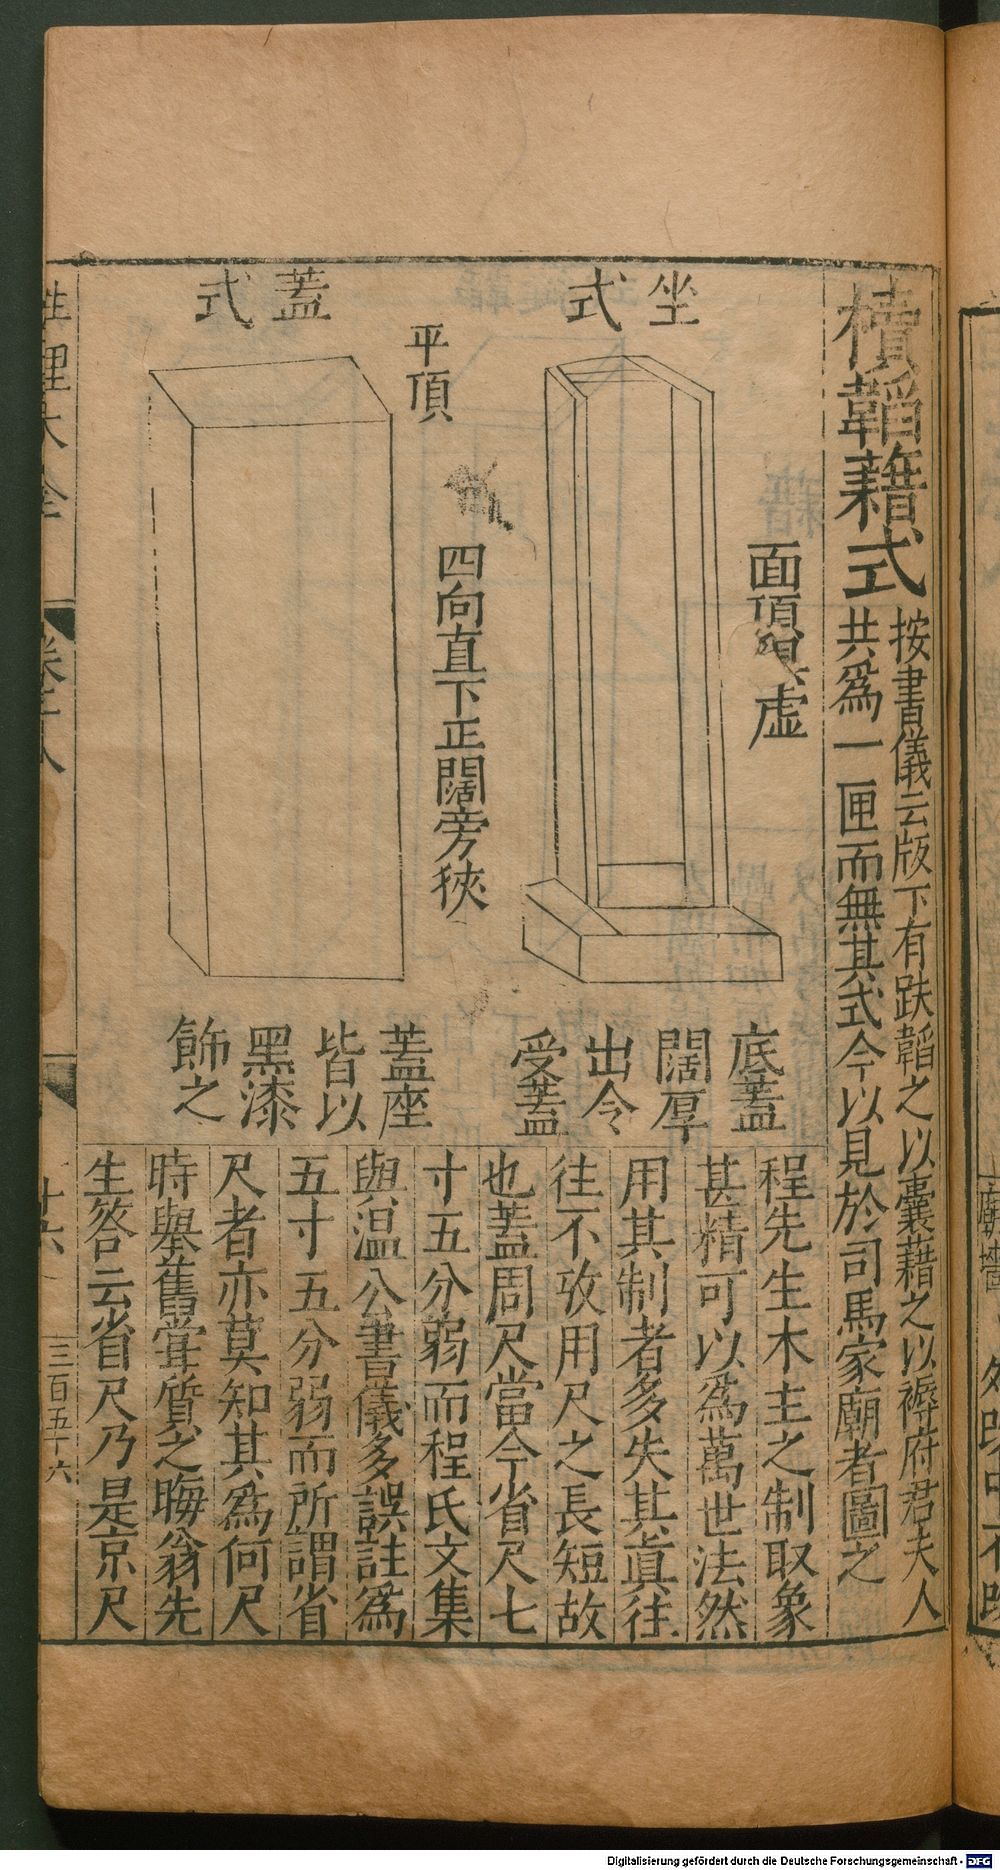 櫝韜藉式
按書儀云版下有趺韜之以囊藉之以褥府君夫人
共為一匣而無其式今以見於司馬家廟者圖之
坐式
面頂俱虛
底蓋
闊厚
出令
受蓋
平頂
四向直下正闊旁狹
蓋式
蓋座
皆以
黑漆
飾之
程先生木主之制取象
甚精可以為萬世法然
用其制者多失其真往
往不攷用尺之長短故
也蓋周尺當今省尺七
寸五分弱而程氏文集
與溫公書儀多誤註為
五寸五分弱而所謂省
尺者亦莫知其為何尺
時舉舊嘗質之晦翁先
生答云省尺乃是京尺
性理大全
十六
三百五十六
Digitalisierung gefördert durch die Deutsche Forschungsgemeinschaft - DFG